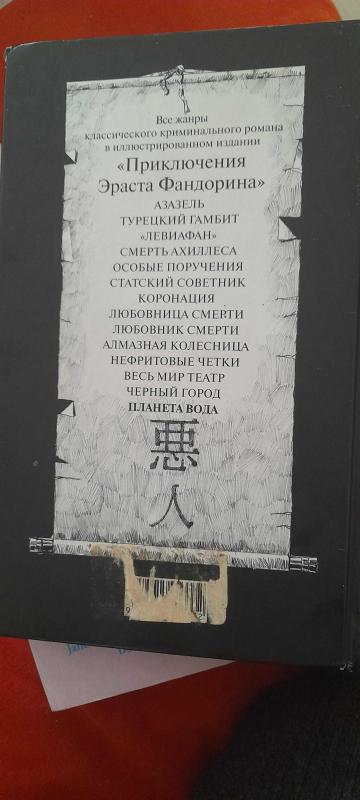 Все жанры
классического криминального романа
в иллюстрированном издании
«Приключения
Эраста Фандорина»
АЗАЗЕЛЬ
ТУРЕЦКИЙ ГАМБИТ
«ЛЕВИАФАН»
СМЕРТЬ АХИЛЛЕСА
ОСОБЫЕ ПОРУЧЕНИЯ
СТАТСКИЙ СОВЕТНИК
КОРОНАЦИЯ
ЛЮБОВНИЦА СМЕРТИ
ЛЮБОВНИК СМЕРТИ
АЛМАЗНАЯ КОЛЕСНИЦА
НЕФРИТОВЫЕ ЧЕТКИ
ВЕСЬ МИР ТЕАТР
ЧЕРНЫЙ ГОРОД
ПЛАНЕТА ВОДА
悪
人
9